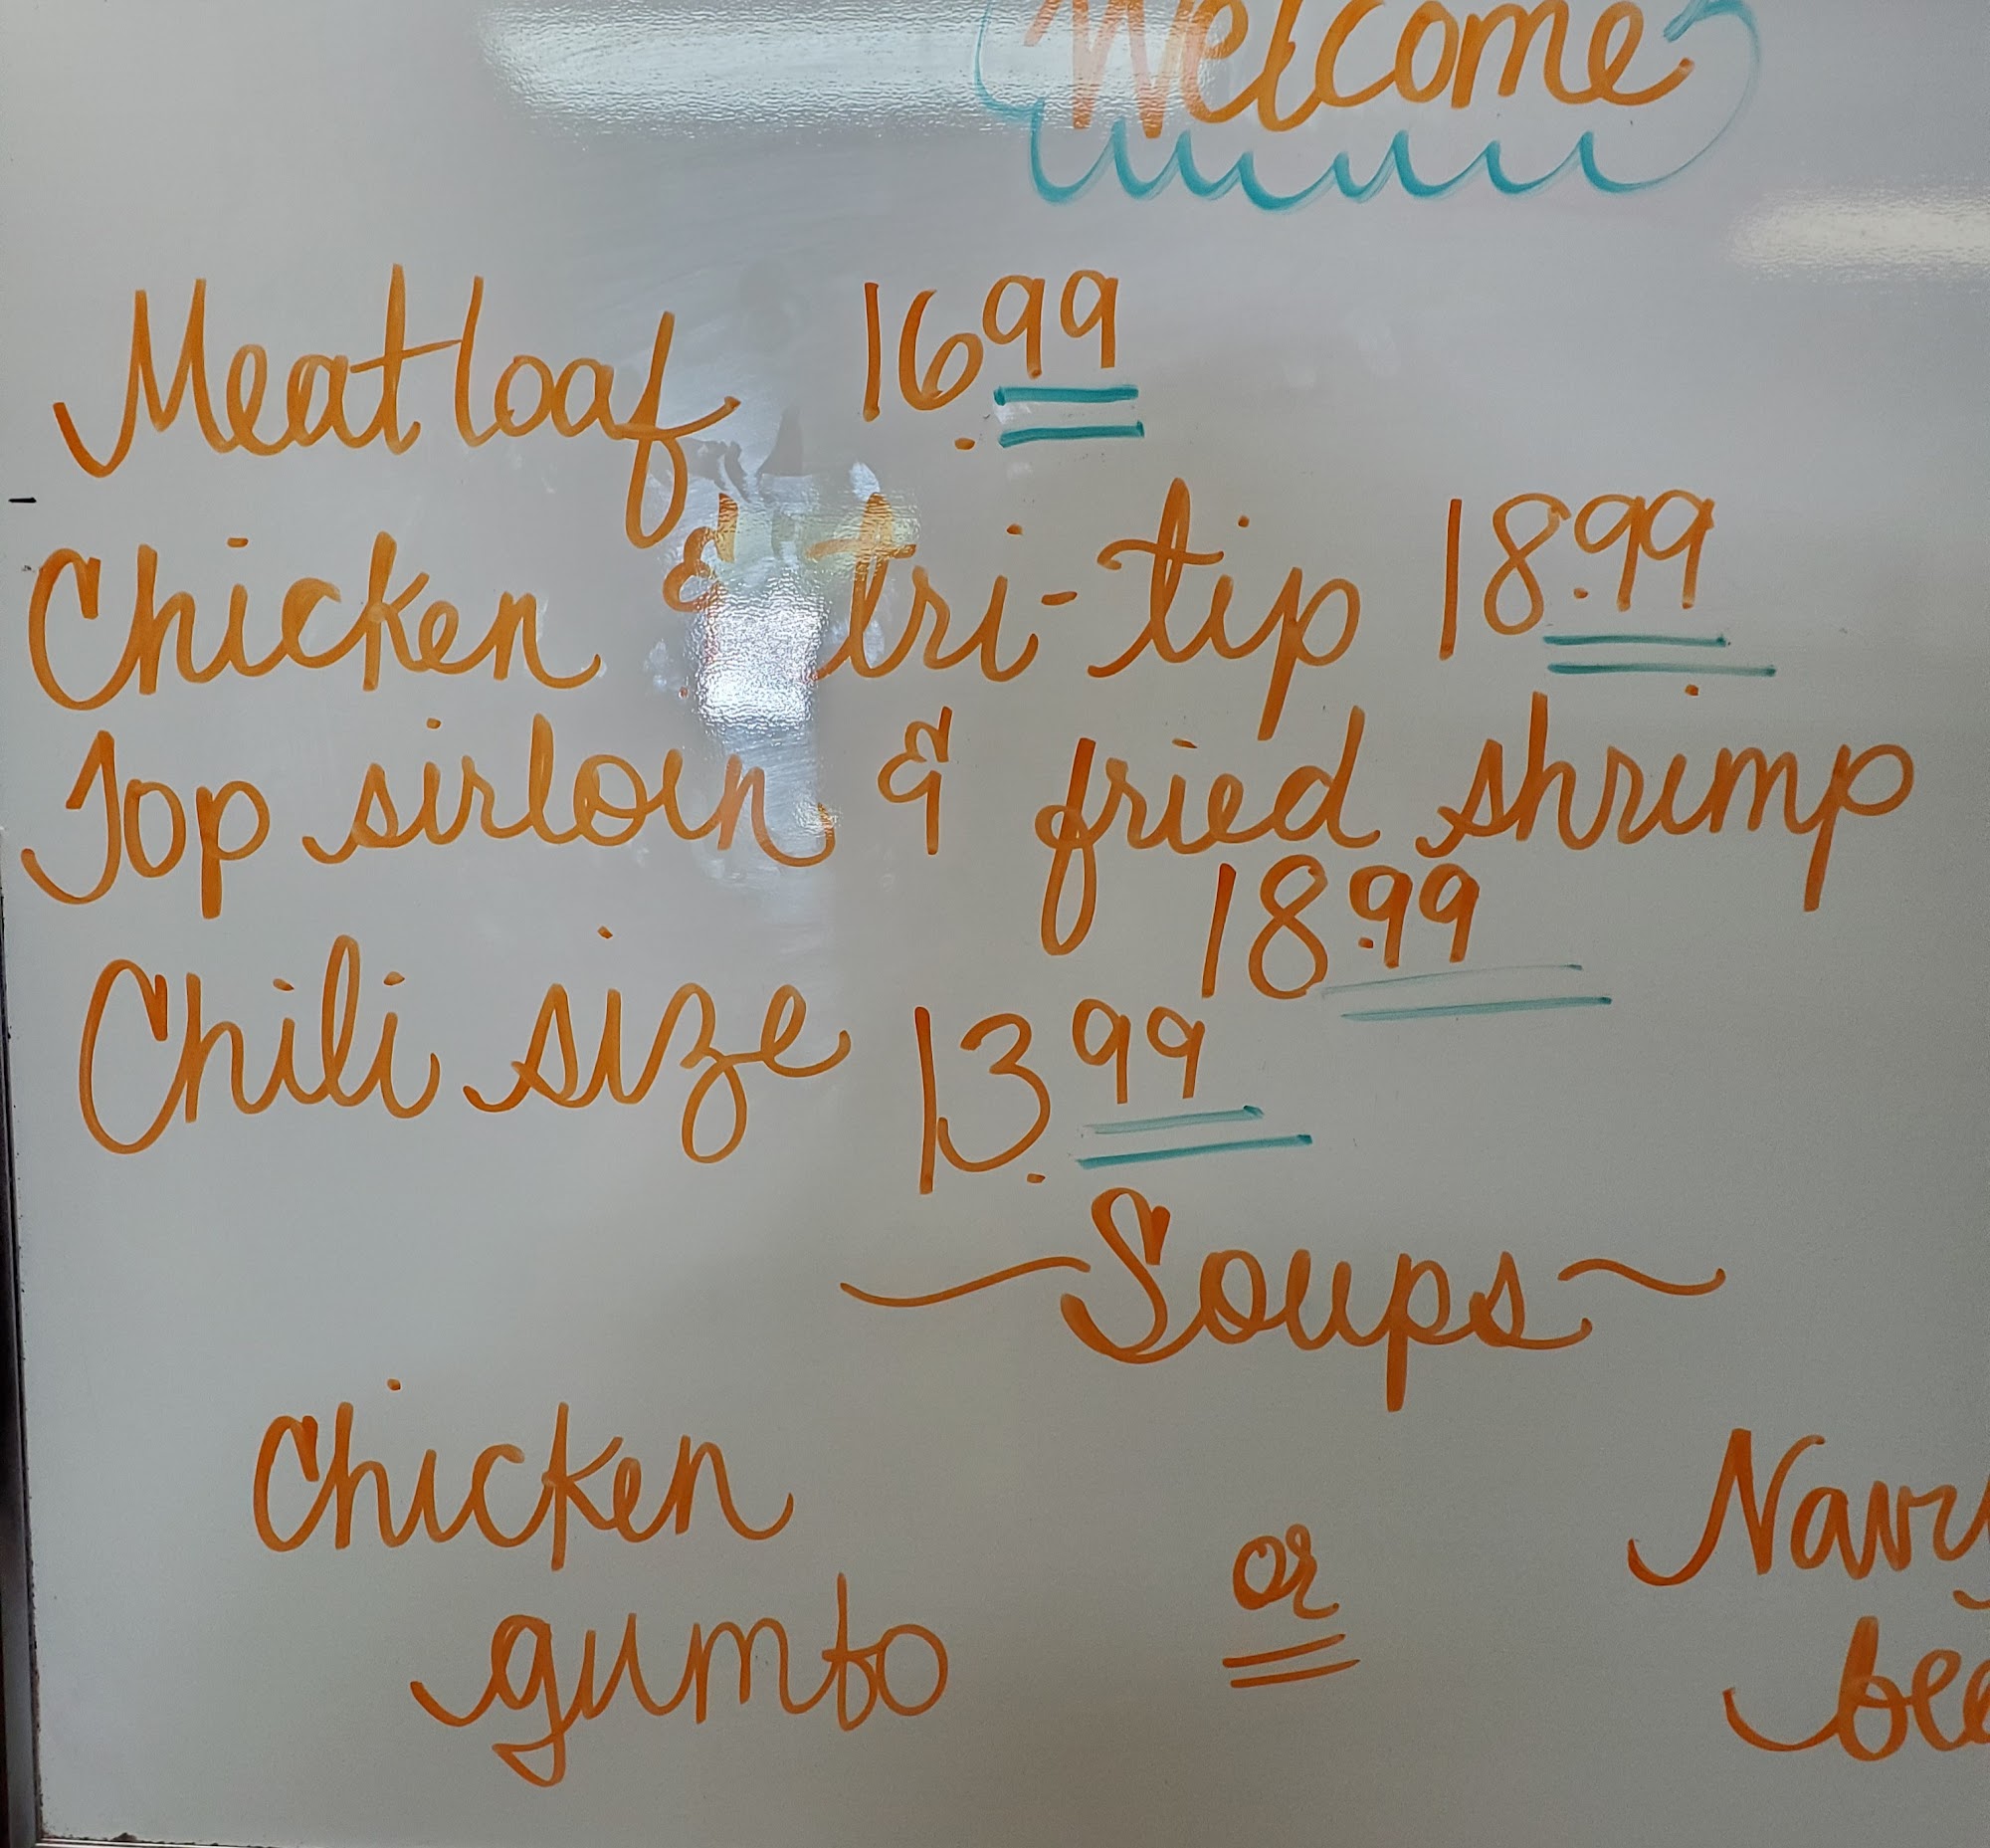 Welcome
Meatloaf 16.99
Chicken & tri-tip 18.99
Top sirloin & fried shrimp
18.99
Chili size 13.99
~Soups~
Chicken
gumbo
or
Navy